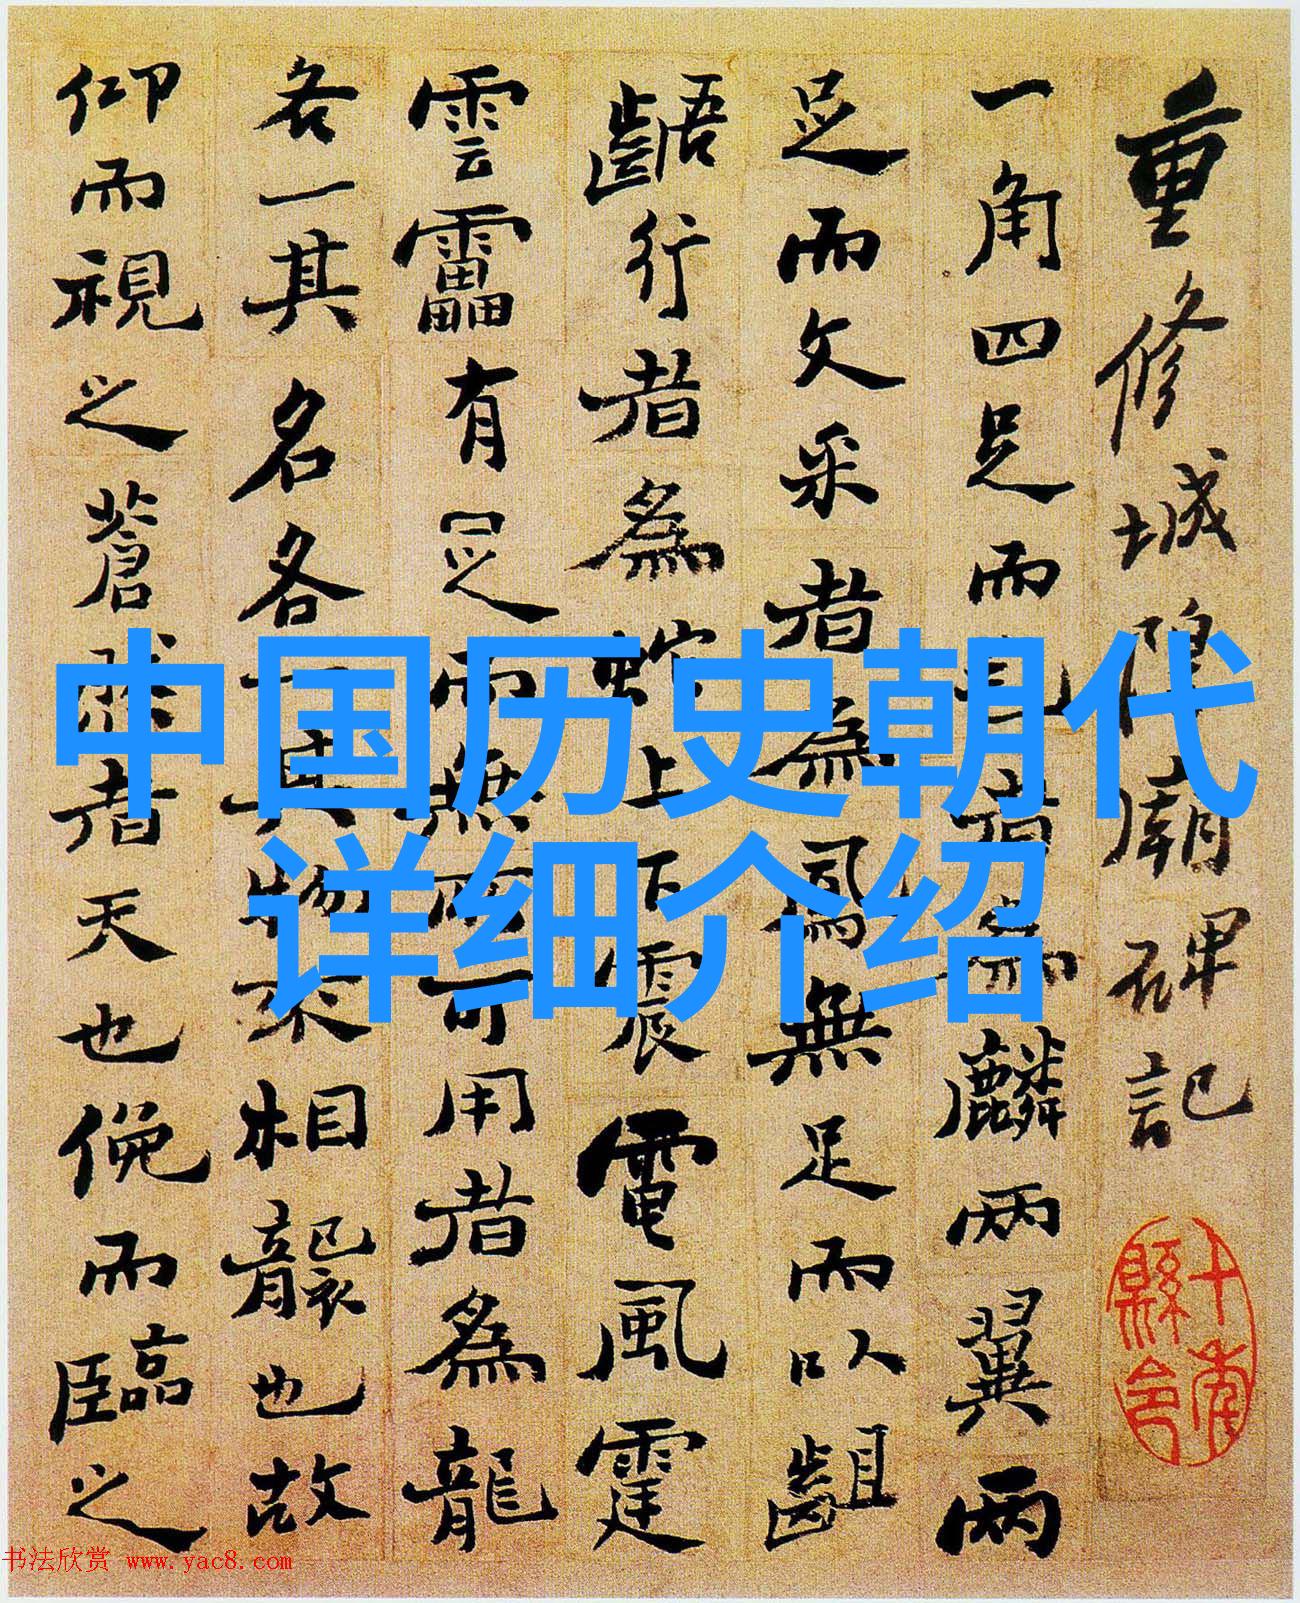 重修城隍廟碑記
一角四足而毛者為麟兩翼兩
足而文采者為鳳無足而以齟
齬行者為蛇上下震電風霆
雲靁有足而無所可用者為龍
各一其名各一其物不相襲也故
仰而視之蒼然者天也俛而臨之
中国历史朝代
详细介绍
书法欣赏 www.yac8.com